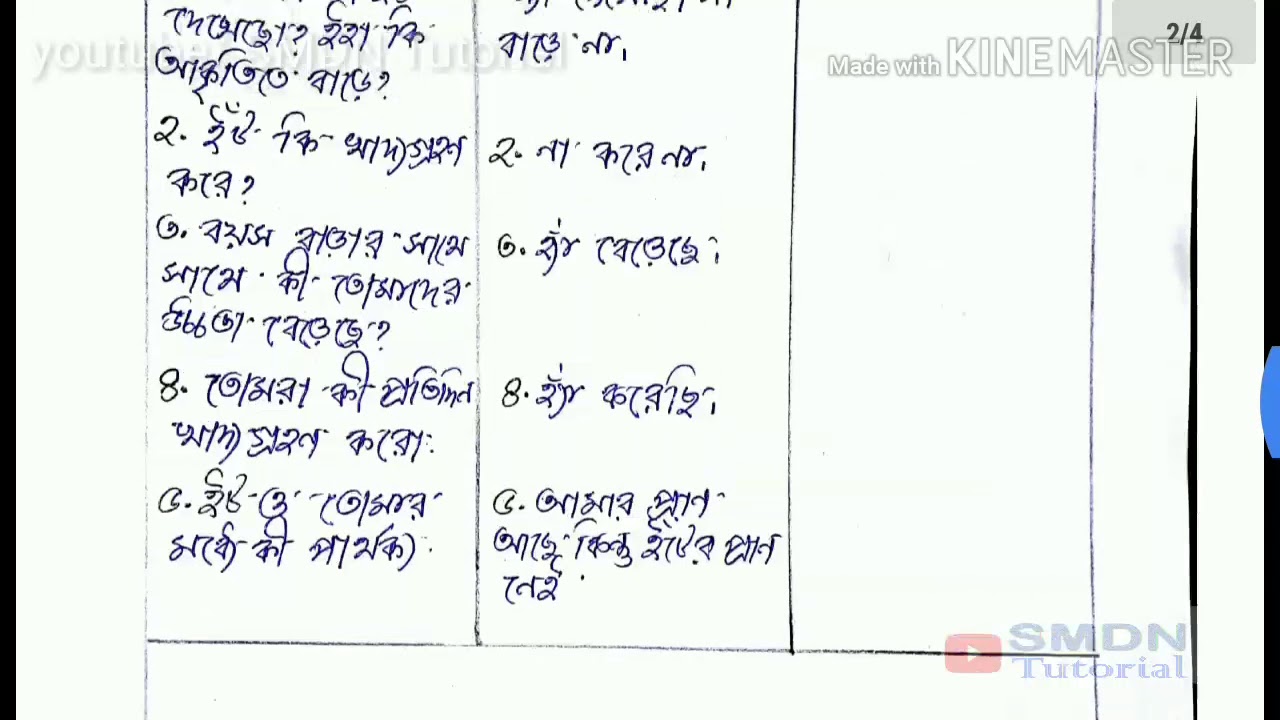 দেখেছো? ইহা কি
আকৃতিতে বাড়ে?
বাড়ে না।
২. ইঁট কি খাদ্যগ্রহণ
করে?
২. না করে না।
৩. বয়স বাড়ার সাথে
সাথে কী তোমাদের
উচ্চতা বেড়েছে?
৩. হ্যাঁ বেড়েছে।
৪. তোমরা কী প্রতিদিন
খাদ্য গ্রহণ করো।
৪. হ্যাঁ করেছি।
৫. ইঁট ও তোমার
মধ্যে কী পার্থক্য
৫. আমার প্রাণ
আছে কিন্তু ইঁটের প্রাণ
নেই
youtube: SMDN Tutorial
2/4
Made with KINEMASTER
SMDN
Tutorial